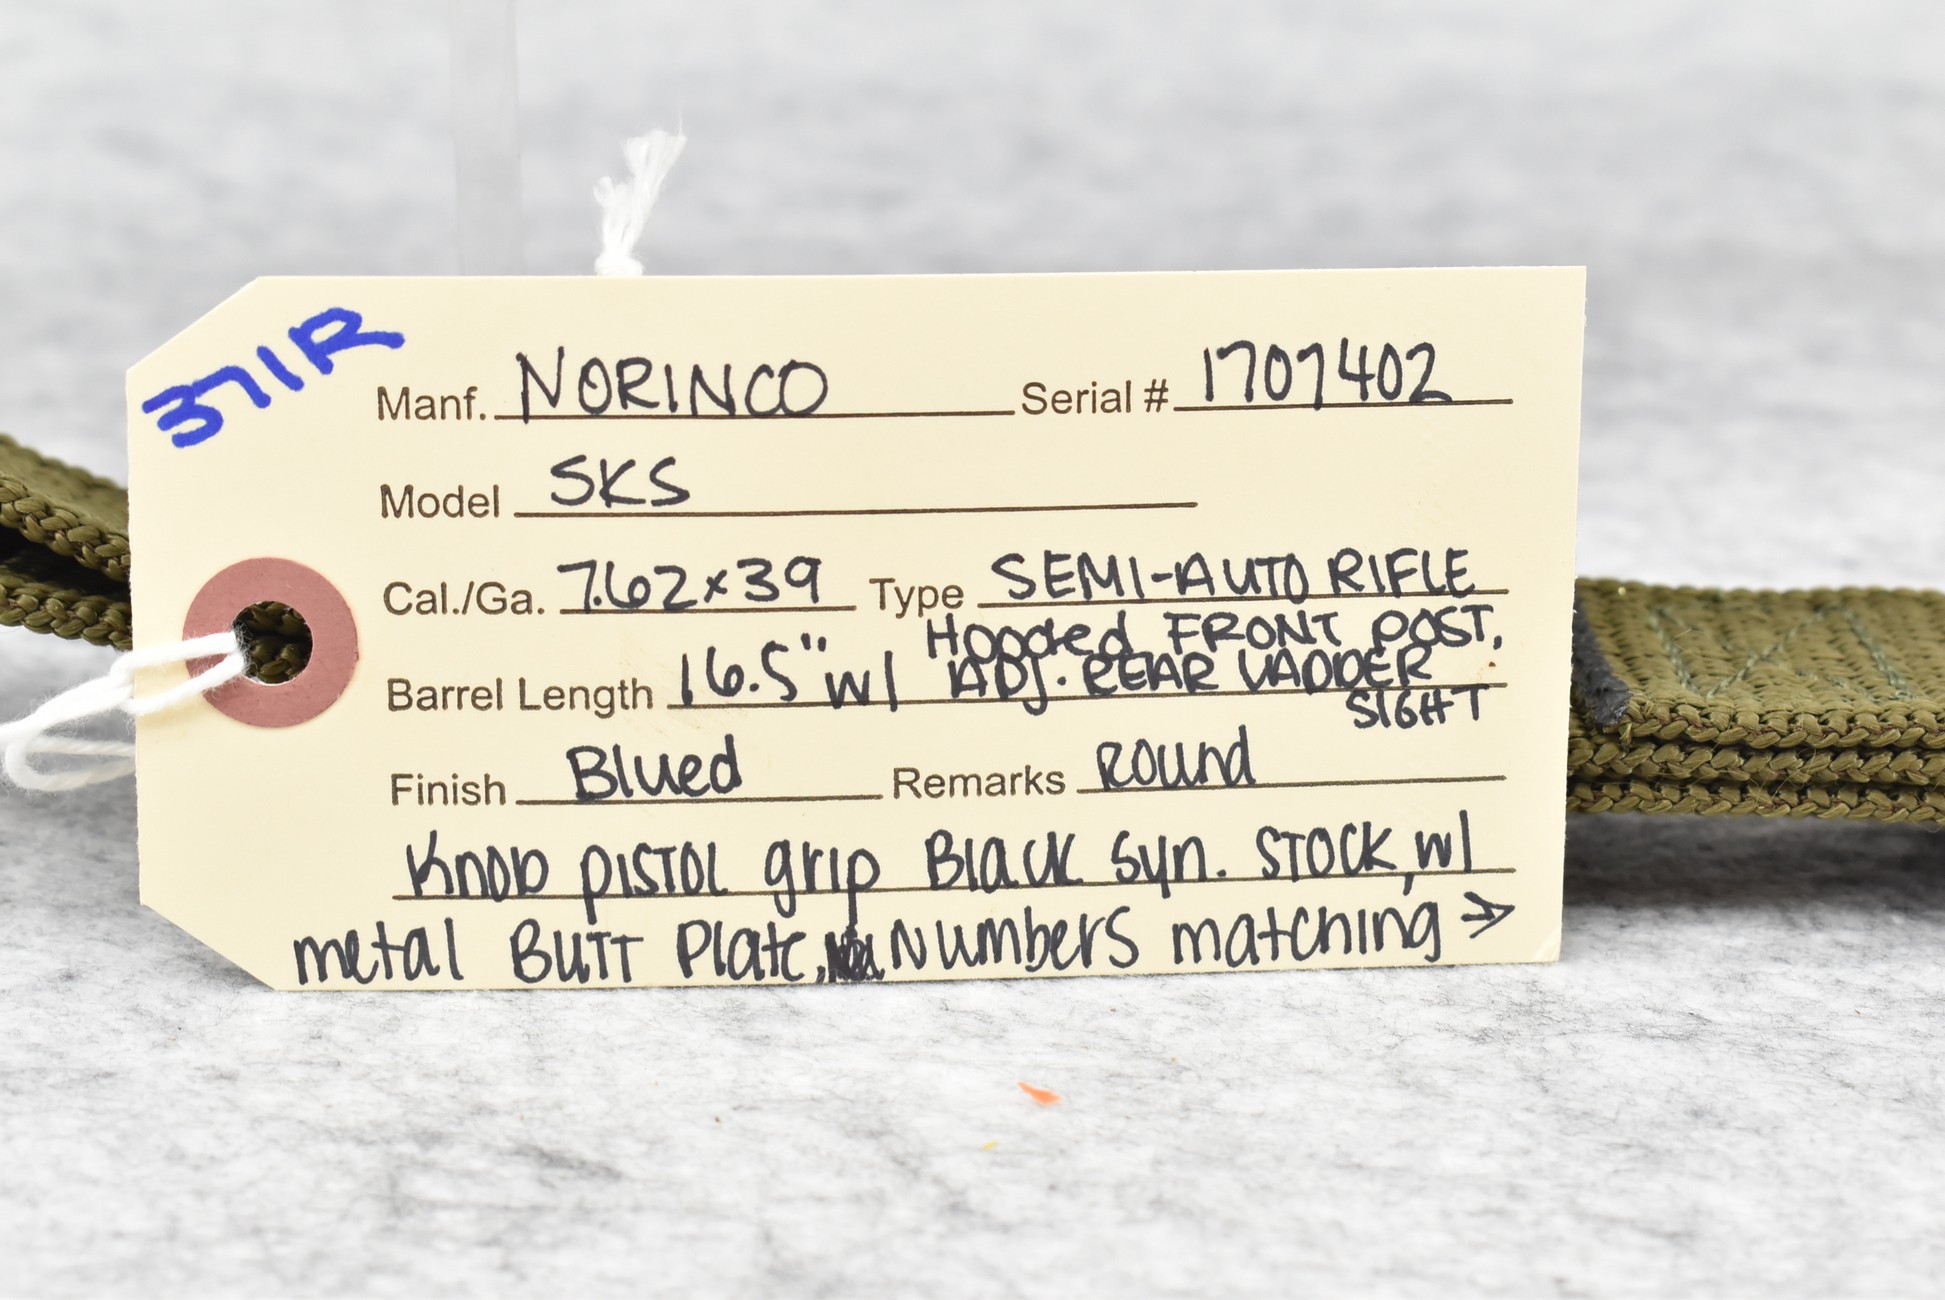 371R
Manf. NORINCO Serial # 1707402
Model SKS
Cal./Ga. 7.62x39 Type SEMI-AUTO RIFLE
Hooded FRONT POST,
Barrel Length 16.5" w/ ADJ. REAR LADDER
SIGHT
Finish Blued Remarks Round
Knob PISTOL grip Black Syn. STOCK, w/
metal BUTT Plate, Numbers matching →